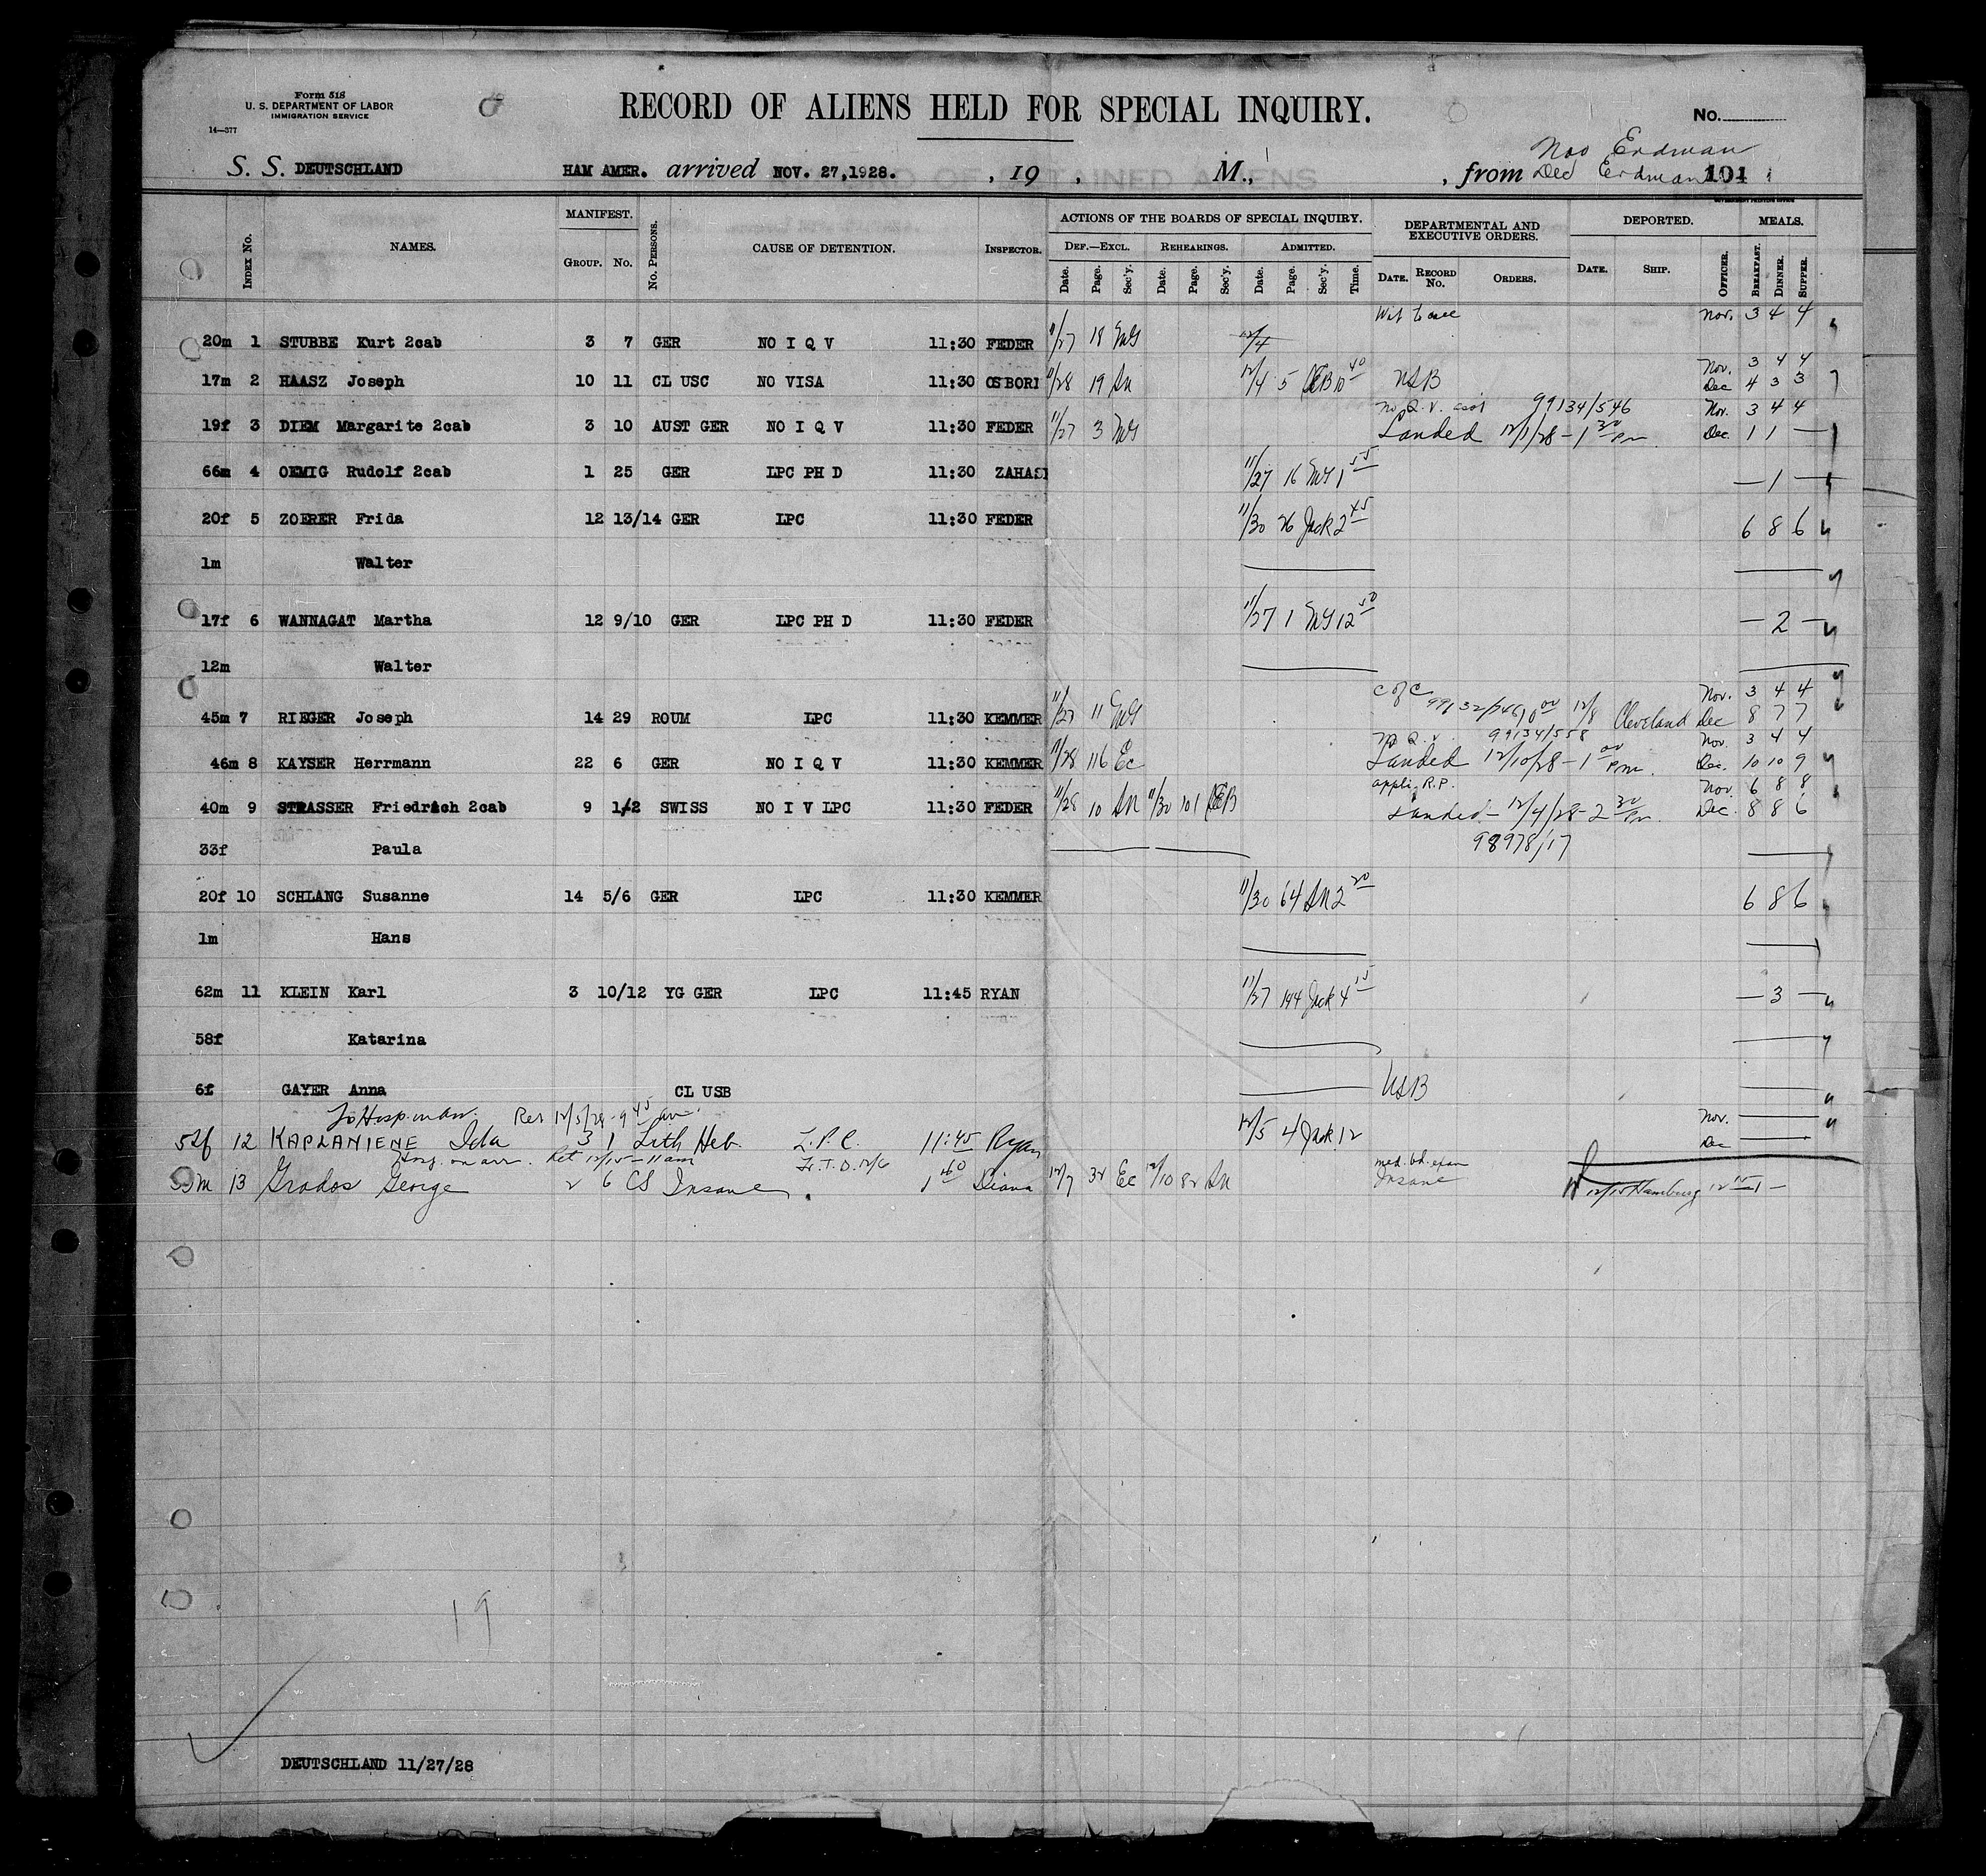 Form 518
U. S. DEPARTMENT OF LABOR
IMMIGRATION SERVICE
14—377
RECORD OF ALIENS HELD FOR SPECIAL INQUIRY.
No.
Nov Erdman
S. S. DEUTSCHLAND HAM AMER. arrived NOV. 27,1928. , 19 , M., , from Dec Erdman 101
INDEX No. NAMES. MANIFEST. GROUP. No. No. PERSONS. CAUSE OF DETENTION. INSPECTOR.
ACTIONS OF THE BOARDS OF SPECIAL INQUIRY. DEF.—EXCL. REHEARINGS. ADMITTED.
Date. Page. Sec'y. Date. Page. Sec'y. Date. Page. Sec'y. Time.
DEPARTMENTAL AND EXECUTIVE ORDERS. DATE. RECORD No. ORDERS.
DEPORTED. DATE. SHIP. OFFICER.
MEALS. BREAKFAST. DINNER. SUPPER.
Nov. 3 4 4
20m 1 STUBBE Kurt 2cab 3 7 GER NO I Q V 11:30 FEDER 11/27 18 12/4
Nov. 3 4 4
17m 2 HAASZ Joseph 10 11 CL USC NO VISA 11:30 OSBORI 11/28 19 12/4 5 10 40 USB Dec 4 3 3
99134/546 Nov. 3 4 4
19f 3 DIEM Margarite 2cab 3 10 AUST GER NO I Q V 11:30 FEDER 11/27 3 Landed 12/1/28 - 1 30 Pm Dec. 1 1 —
66m 4 OEMIG Rudolf 2cab 1 25 GER LPC PH D 11:30 ZAHAS 11/27 16 1 55 — 1 —
20f 5 ZOERER Frida 12 13/14 GER LPC 11:30 FEDER 11/30 26 Jack 2 45 6 8 6
1m Walter
17f 6 WANNAGAT Martha 12 9/10 GER LPC PH D 11:30 FEDER 11/27 1 12 50 — 2 —
12m Walter
C of C Nov. 3 4 4
45m 7 RIEGER Joseph 14 29 ROUM LPC 11:30 KEMMER 11/27 11 12/8 Cleveland Dec 8 7 7
99134/558 Nov. 3 4 4
46m 8 KAYSER Herrmann 22 6 GER NO I Q V 11:30 KEMMER 11/28 116 Ec Landed 12/10/28 - 1 00 Pm. Dec. 10 10 9
appli. R.P. Nov. 6 8 8
40m 9 STRASSER Friedrich 2cab 9 1/2 SWISS NO I V LPC 11:30 FEDER 11/28 10 11/30 101 Landed - 12/4/28 - 2 30 Pm. Dec. 8 8 6
33f Paula 98978/17
20f 10 SCHLANG Susanne 14 5/6 GER LPC 11:30 KEMMER 11/30 64 2 20 6 8 6
1m Hans
62m 11 KLEIN Karl 3 10/12 YG GER LPC 11:45 RYAN 11/27 144 Jack 4 15 — 3 —
58f Katarina
6f GAYER Anna CL USB USB
To Hosp. on arr. 12/5/28 - 9 45 Nov.
52f 12 KAPLANIENE Ida 3 1 Lith Heb. L. P. C. 11:45 Ryan 12/5 4 Jack 12 Dec
Hosp. on arr. Ret 12/15 - 11 am 12/6 med. bd. exam
13 Grados George 2 6 CS Insane 1 40 Diana 12/7 32 Ec 12/10 82 Insane 12/15 Hamburg 12 15 — 1 —
19
DEUTSCHLAND 11/27/28